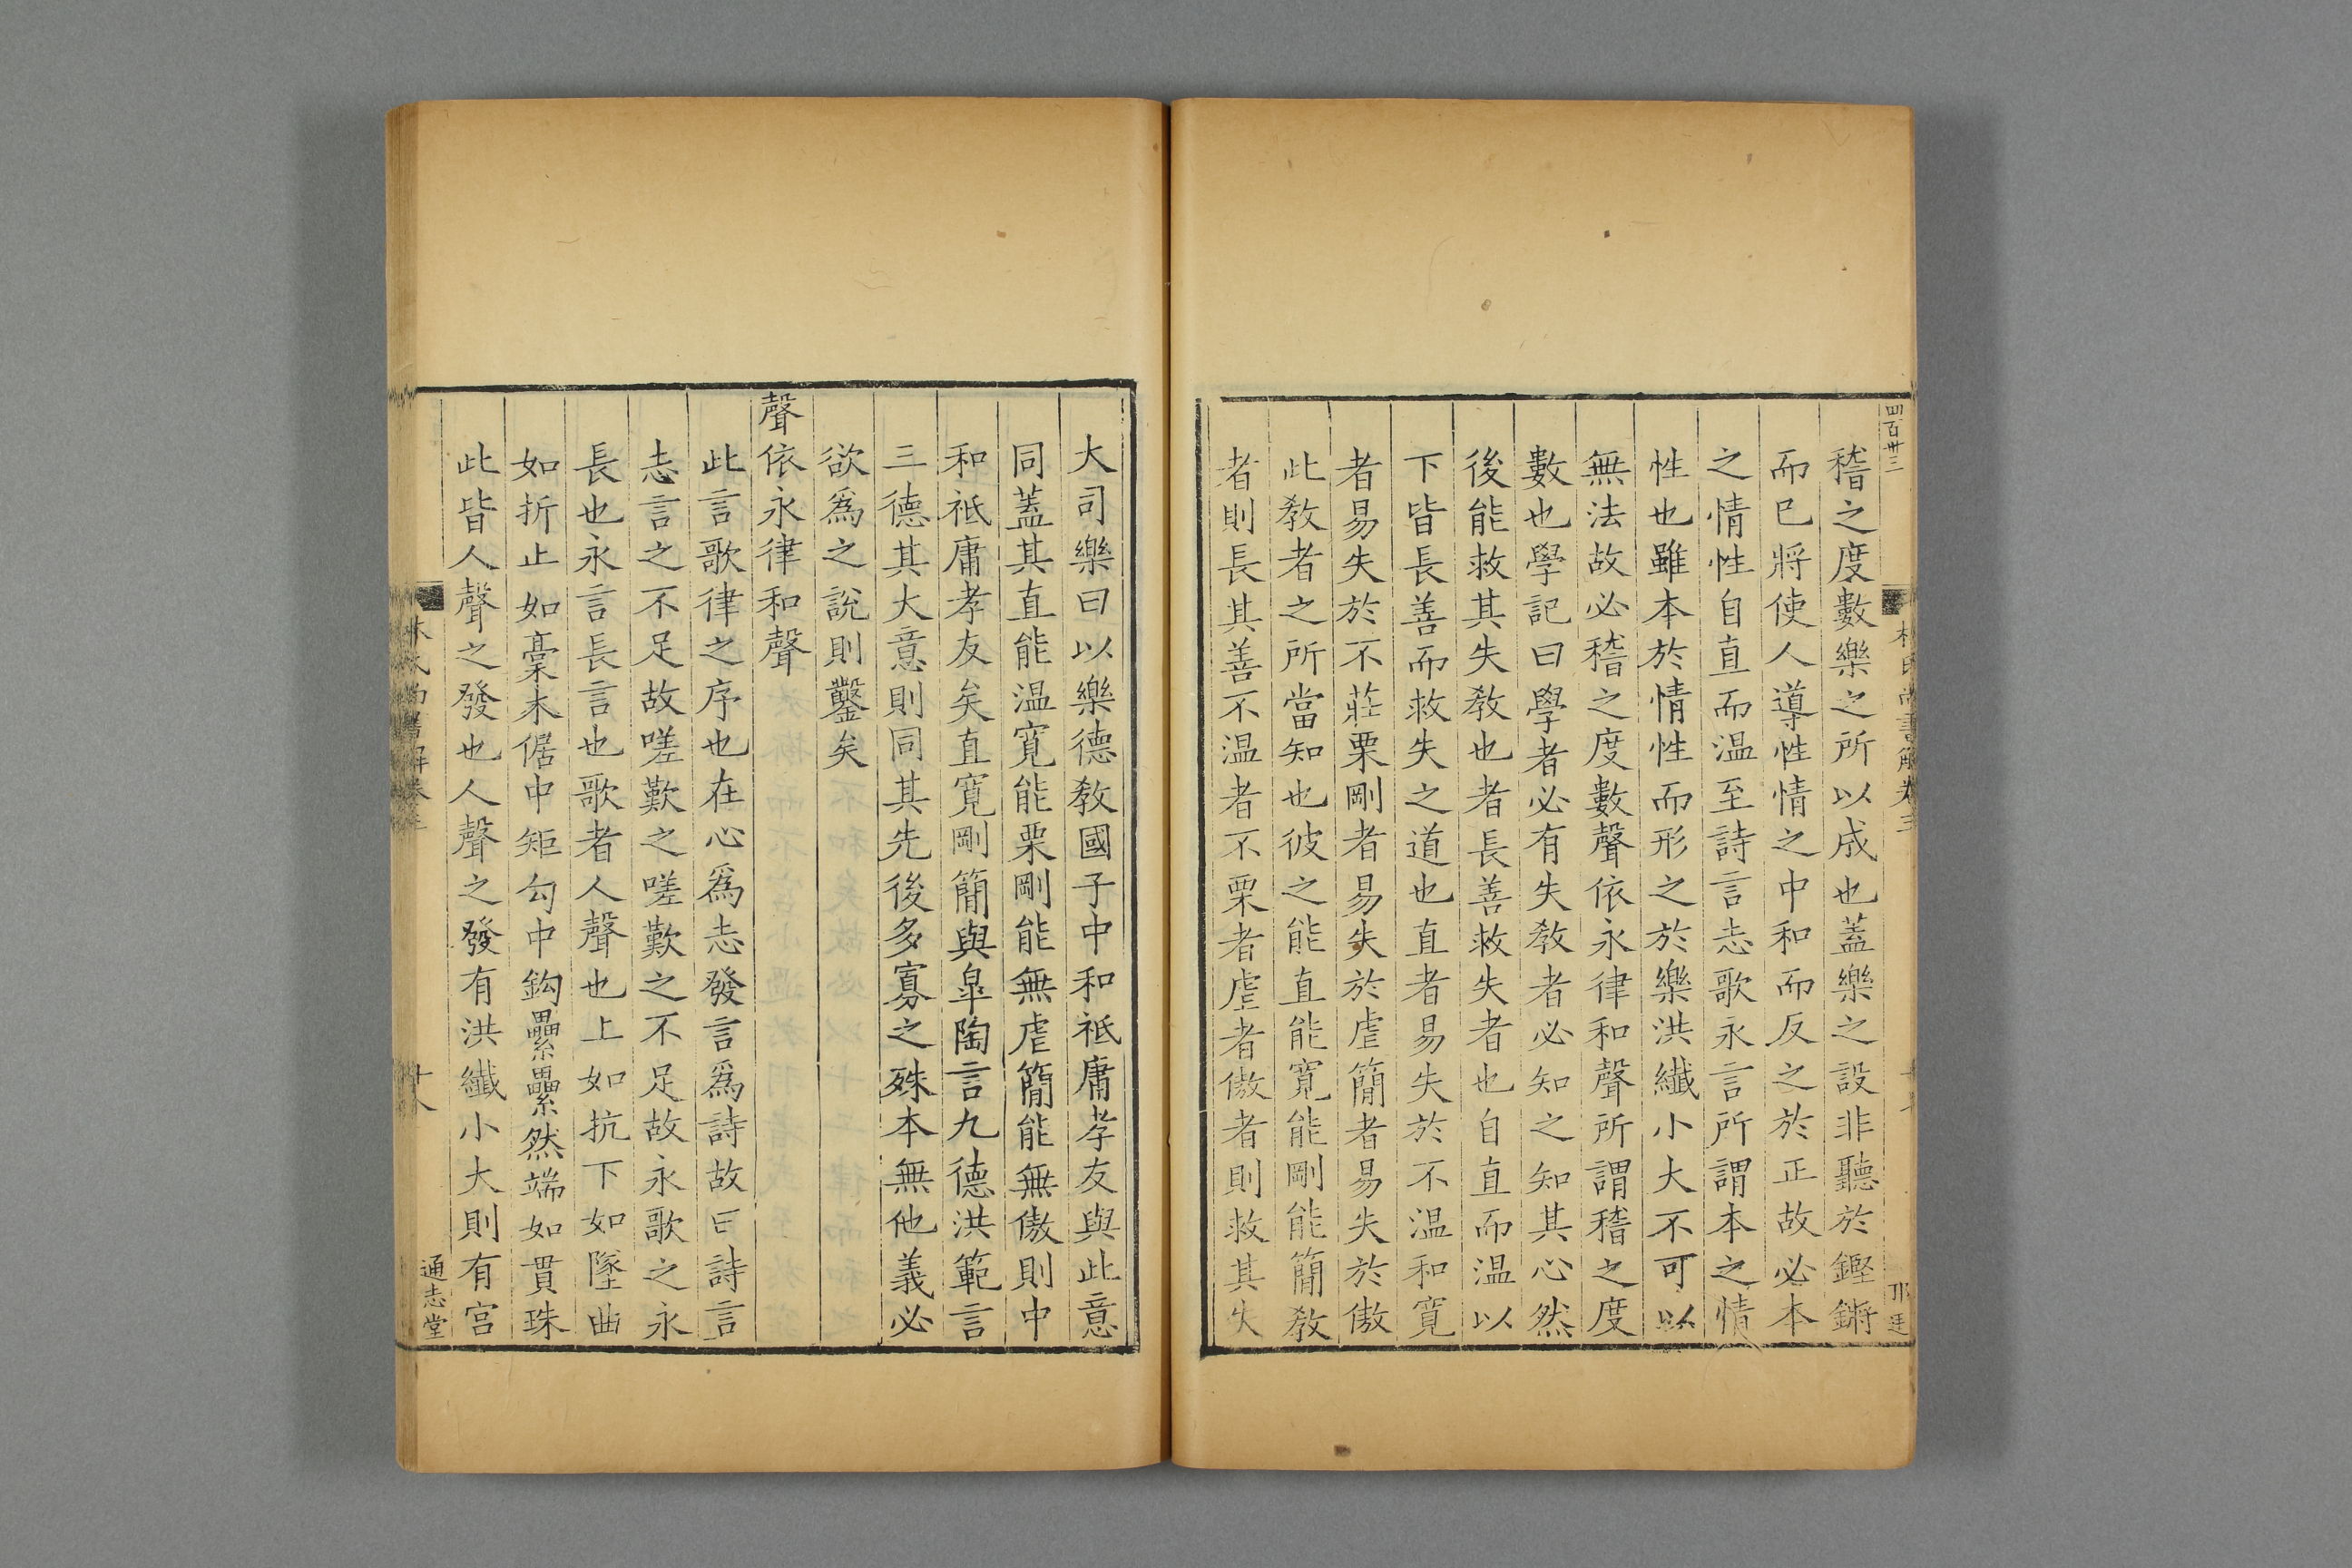 四百卅三
稽之度數樂之所以成也蓋樂之設非聽於鏗鏘
而巳將使人導性情之中和而反之於正故必本
之情性自直而温至詩言志歌永言所謂本之情
性也雖本於情性而形之於樂洪纖小大不可以
無法故必稽之度數聲依永律和聲所謂稽之度
數也學記曰學者必有失敎者必知之知其心然
後能救其失敎也者長善救失者也自直而温以
下皆長善而救失之道也直者易失於不温和寛
者易失於不莊栗剛者易失於虐簡者易失於傲
此敎者之所當知也彼之能直能寛能剛能簡敎
者則長其善不温者不栗者虐者傲者則救其失
大司樂曰以樂德敎國子中和祗庸孝友與此意
同蓋其直能温寛能栗剛能無虐簡能無傲則中
和祗庸孝友矣直寛剛簡與臯陶言九德洪範言
三德其大意則同其先後多寡之殊本無他義必
欲爲之說則鑿矣
聲依永律和聲
此言歌律之序也在心爲志發言爲詩故曰詩言
志言之不足故嗟歎之嗟歎之不足故永歌之永
長也永言長言也歌者人聲也上如抗下如墜曲
如折止如槀木倨中矩勾中鈎纍纍然端如貫珠
此皆人聲之發也人聲之發有洪纖小大則有宫
林氏尚書解卷三
十八
通志堂